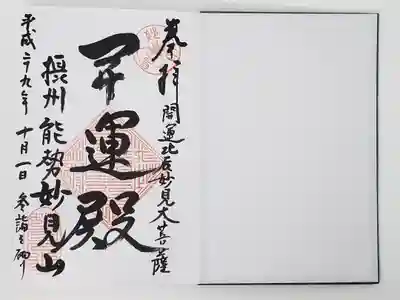 奉拝
開運北辰妙見大菩薩
開運殿
摂州 能勢妙見山
平成二十九年 十月一日